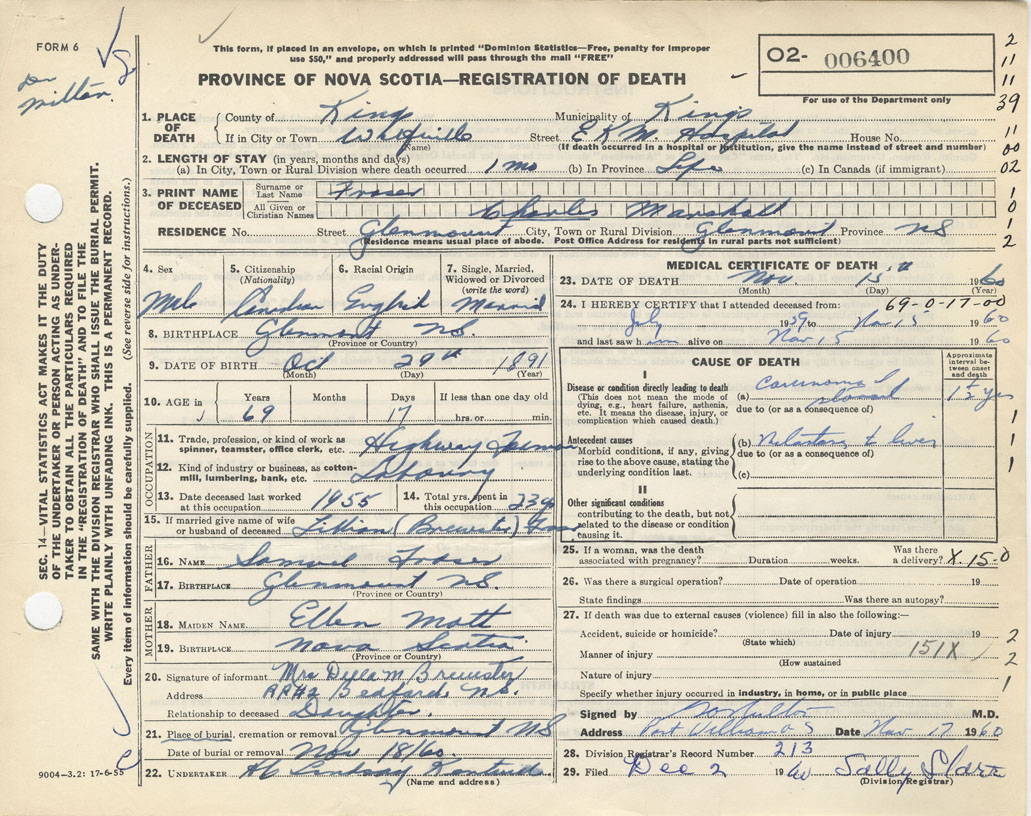 FORM 6
This form, if placed in an envelope, on which is printed "Dominion Statistics—Free, penalty for improper
use $50," and properly addressed will pass through the mail "FREE"
PROVINCE OF NOVA SCOTIA—REGISTRATION OF DEATH
02- 006400
For use of the Department only
2
11
11
39
11
00
02
1
0
1
2
Dr
Milton.
1. PLACE OF DEATH
County of Kings Municipality of Kings
If in City or Town Wolfville (Name) Street E.K.M. Hospital House No.
(If death occurred in a hospital or institution, give the name instead of street and number)
2. LENGTH OF STAY (in years, months and days)
(a) In City, Town or Rural Division where death occurred 1 mo (b) In Province Life (c) In Canada (if immigrant)
3. PRINT NAME OF DECEASED
Surname or Last Name Fraser
All Given or Christian Names Charles Marshall
RESIDENCE No. Street Glenmount City, Town or Rural Division Glenmount Province NS
(Residence means usual place of abode. Post Office Address for residents in rural parts not sufficient)
SEC. 14—VITAL STATISTICS ACT MAKES IT THE DUTY
OF THE UNDERTAKER OR PERSON ACTING AS UNDER-
TAKER TO OBTAIN ALL THE PARTICULARS REQUIRED
IN THE "REGISTRATION OF DEATH" AND TO FILE THE
SAME WITH THE DIVISION REGISTRAR WHO SHALL ISSUE THE BURIAL PERMIT.
WRITE PLAINLY WITH UNFADING INK. THIS IS A PERMANENT RECORD.
Every item of information should be carefully supplied. (See reverse side for instructions.)
4. Sex Male
5. Citizenship (Nationality) Canadian
6. Racial Origin English
7. Single, Married, Widowed or Divorced (write the word) Married
8. BIRTHPLACE Glenmount NS.
(Province or Country)
9. DATE OF BIRTH Oct 29th 1891
(Month) (Day) (Year)
10. AGE in Years Months Days If less than one day old
69 17 hrs. or min.
OCCUPATION
11. Trade, profession, or kind of work as
spinner, teamster, office clerk, etc. Highway Foreman
12. Kind of industry or business, as cotton-
mill, lumbering, bank, etc. Labouring
13. Date deceased last worked at this occupation 1955
14. Total yrs. spent in this occupation
15. If married give name of wife
or husband of deceased Lillian (Brewster) Fraser
FATHER
16. NAME Samuel Fraser
17. BIRTHPLACE Glenmount NS.
(Province or Country)
MOTHER
18. MAIDEN NAME Ellen Mott
19. BIRTHPLACE Nova Scotia
(Province or Country)
20. Signature of informant Mrs Della M Brewster
Address RR#2 Bedford, NS.
Relationship to deceased Daughter.
21. Place of burial, cremation or removal Glenmount NS
Date of burial or removal Nov 18/60.
22. UNDERTAKER Lindsay Kentville
(Name and address)
9004—3.2: 17-6-55
MEDICAL CERTIFICATE OF DEATH
23. DATE OF DEATH Nov 15th 1960
(Month) (Day) (Year)
24. I HEREBY CERTIFY that I attended deceased from: 69-0-17-00
July 1959 to Nov 15 1960
and last saw him alive on Nov 15 1960
CAUSE OF DEATH
Approximate interval between onset and death
I
Disease or condition directly leading to death
(This does not mean the mode of
dying, e.g., heart failure, asthenia,
etc. It means the disease, injury, or
complication which caused death.)
(a) Carcinoma of stomach 1½ yrs
due to (or as a consequence of)
Antecedent causes
Morbid conditions, if any, giving
rise to the above cause, stating the
underlying condition last.
(b) Metastasis to liver
due to (or as a consequence of)
(c)
1
1
1
II
Other significant conditions
contributing to the death, but not
related to the disease or condition
causing it.
25. If a woman, was the death
associated with pregnancy? Duration weeks. Was there a delivery? X-15-0
26. Was there a surgical operation? Date of operation 19
State findings Was there an autopsy?
27. If death was due to external causes (violence) fill in also the following:—
Accident, suicide or homicide? (State which) Date of injury 19 2
Manner of injury (How sustained) 151X 2
Nature of injury 1
Specify whether injury occurred in industry, in home, or in public place
Signed by M.D.
Address Port Williams NS Date Nov 17 1960
28. Division Registrar's Record Number 213
29. Filed Dec 2 1960 Sally
(Division Registrar)